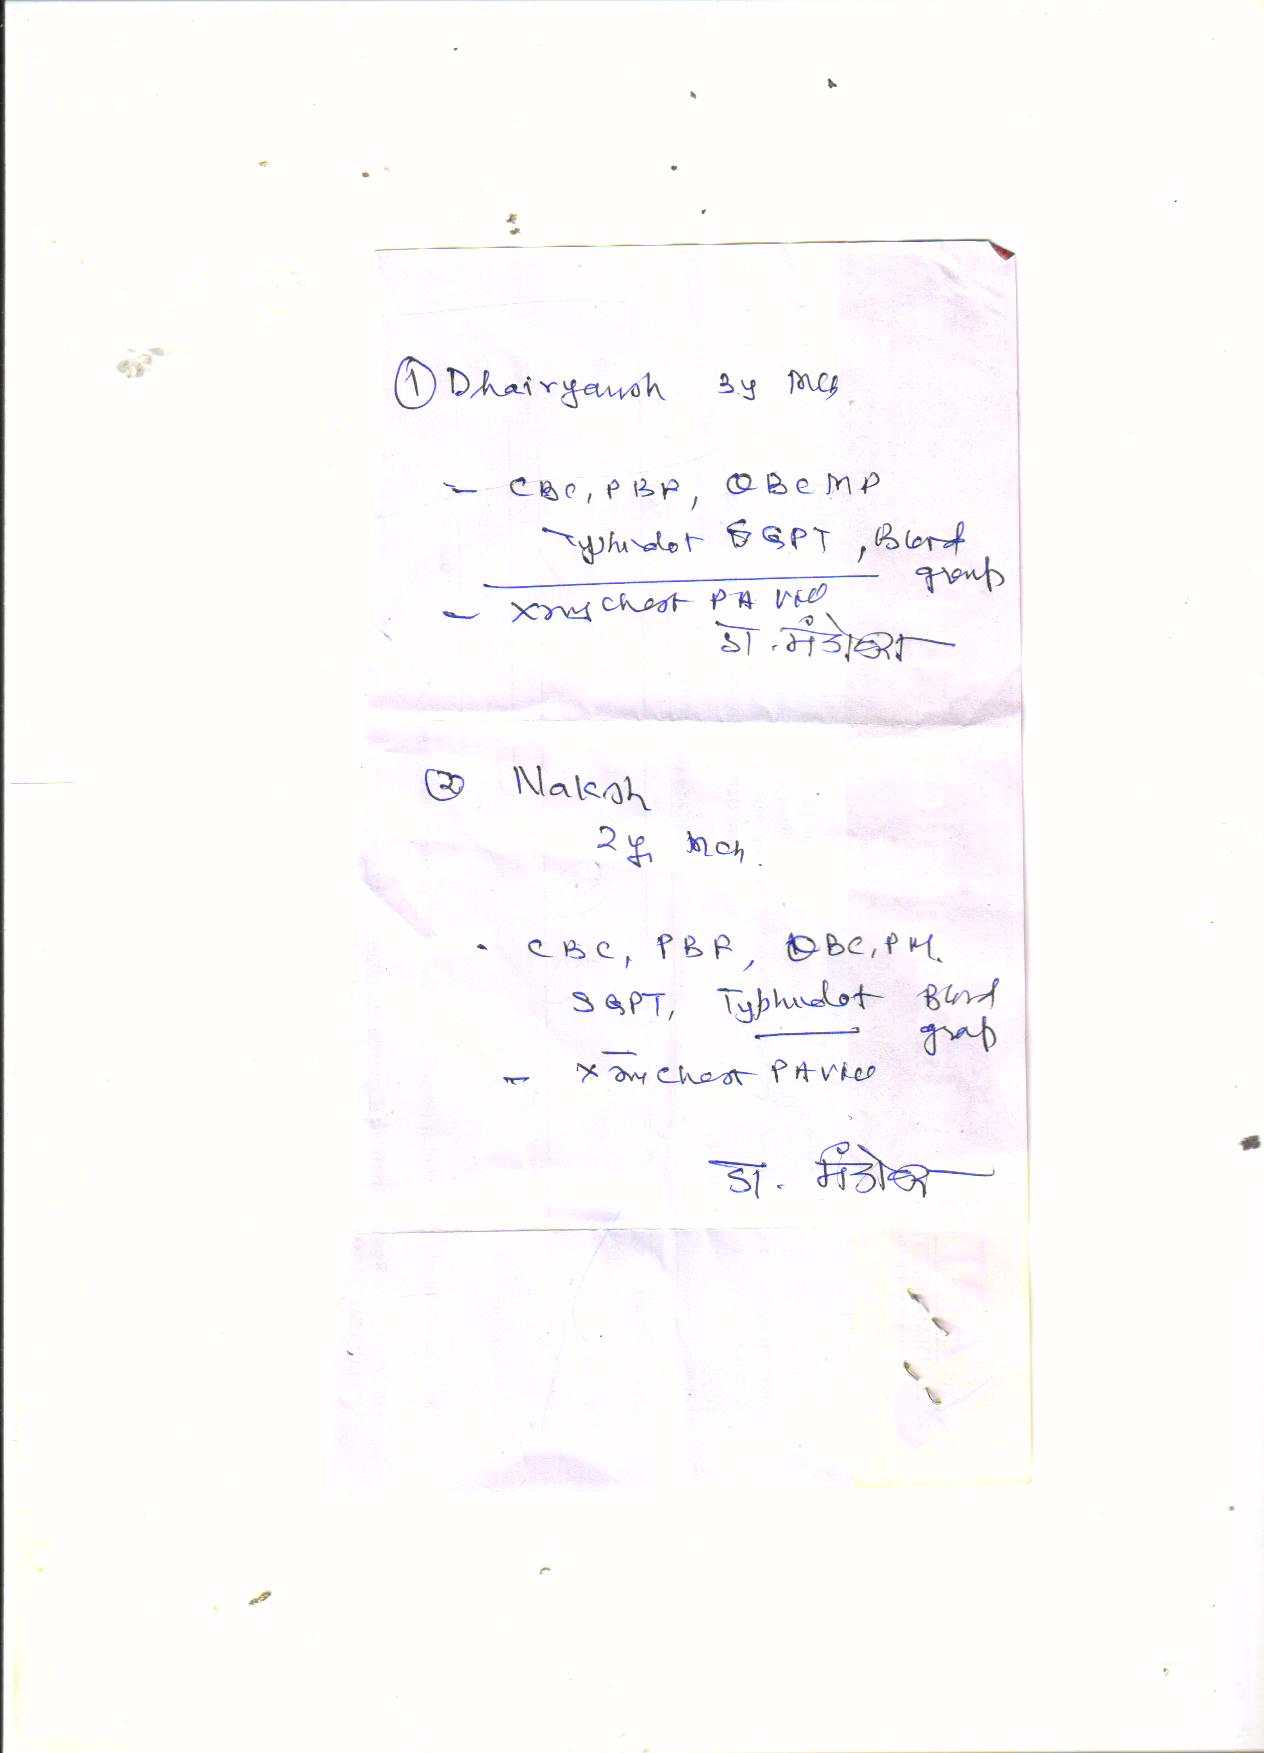 ① Dhairyansh 3y mch
- CBC, PBF, QBC MP
Typhidot SGPT, Blood
group
- Xray chest PA view
डा. मंडोरा
② Naksh
2y mch.
- CBC, PBF, QBC, PM.
SGPT, Typhidot Blood
group
- Xray chest PA view
डा.